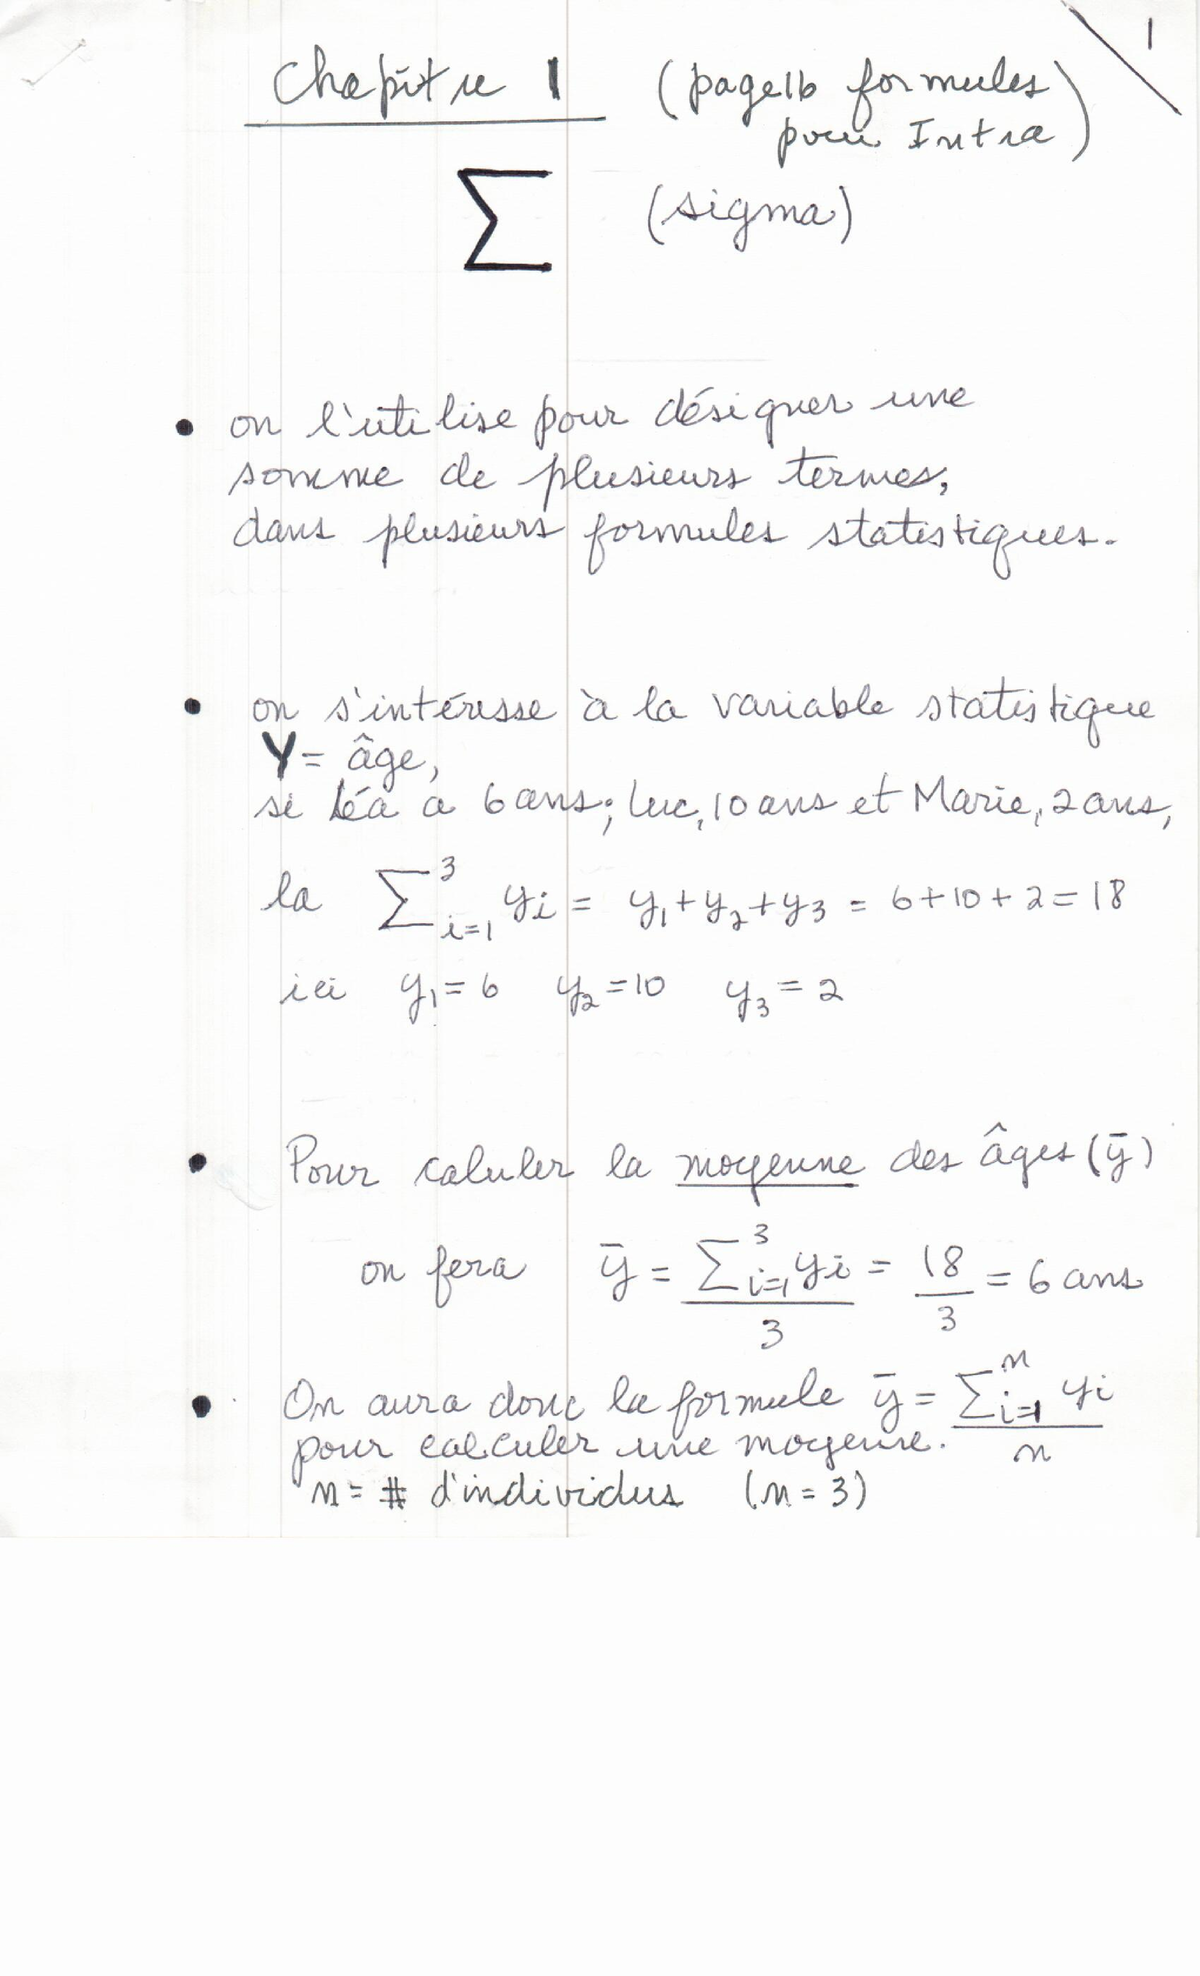 1
Chapitre 1 (page 16 formules
pour Intra)
Σ (sigma)
• on l'utilise pour désigner une
somme de plusieurs termes,
dans plusieurs formules statistiques.
• on s'intéresse à la variable statistique
Y = âge,
si Léa a 6 ans; Luc, 10 ans et Marie, 2 ans,
la Σ³ᵢ₌₁ yi = y₁ + y₂ + y₃ = 6 + 10 + 2 = 18
ici y₁ = 6 y₂ = 10 y₃ = 2
• Pour caluler la moyenne des âges (ȳ)
on fera ȳ = Σ³ᵢ₌₁ yi / 3 = 18 / 3 = 6 ans
• On aura donc la formule ȳ = Σⁿᵢ₌₁ yi / n
pour calculer une moyenne.
n = # d'individus (n = 3)